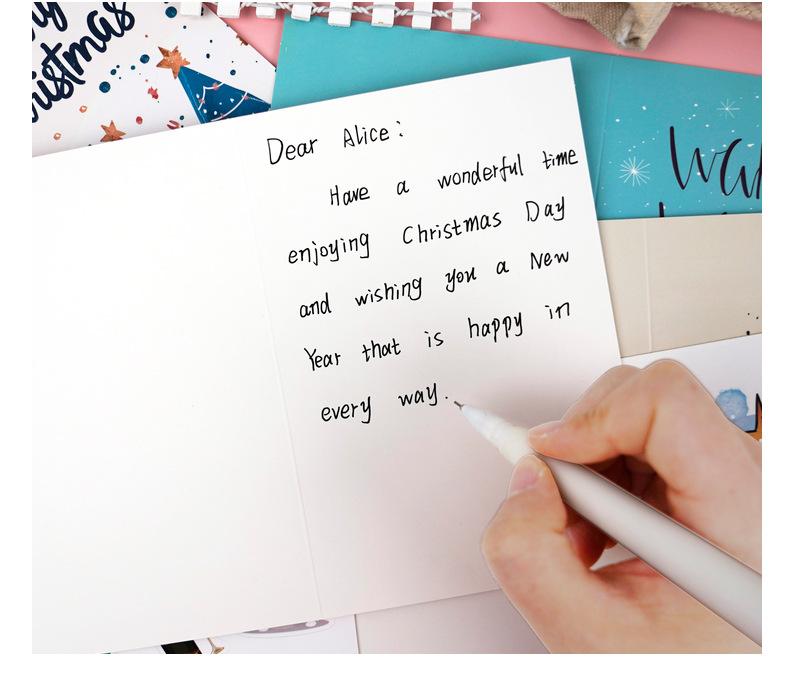 istmas
Dear Alice:
Have a wonderful time
enjoying Christmas Day
and wishing you a New
Year that is happy in
every way.